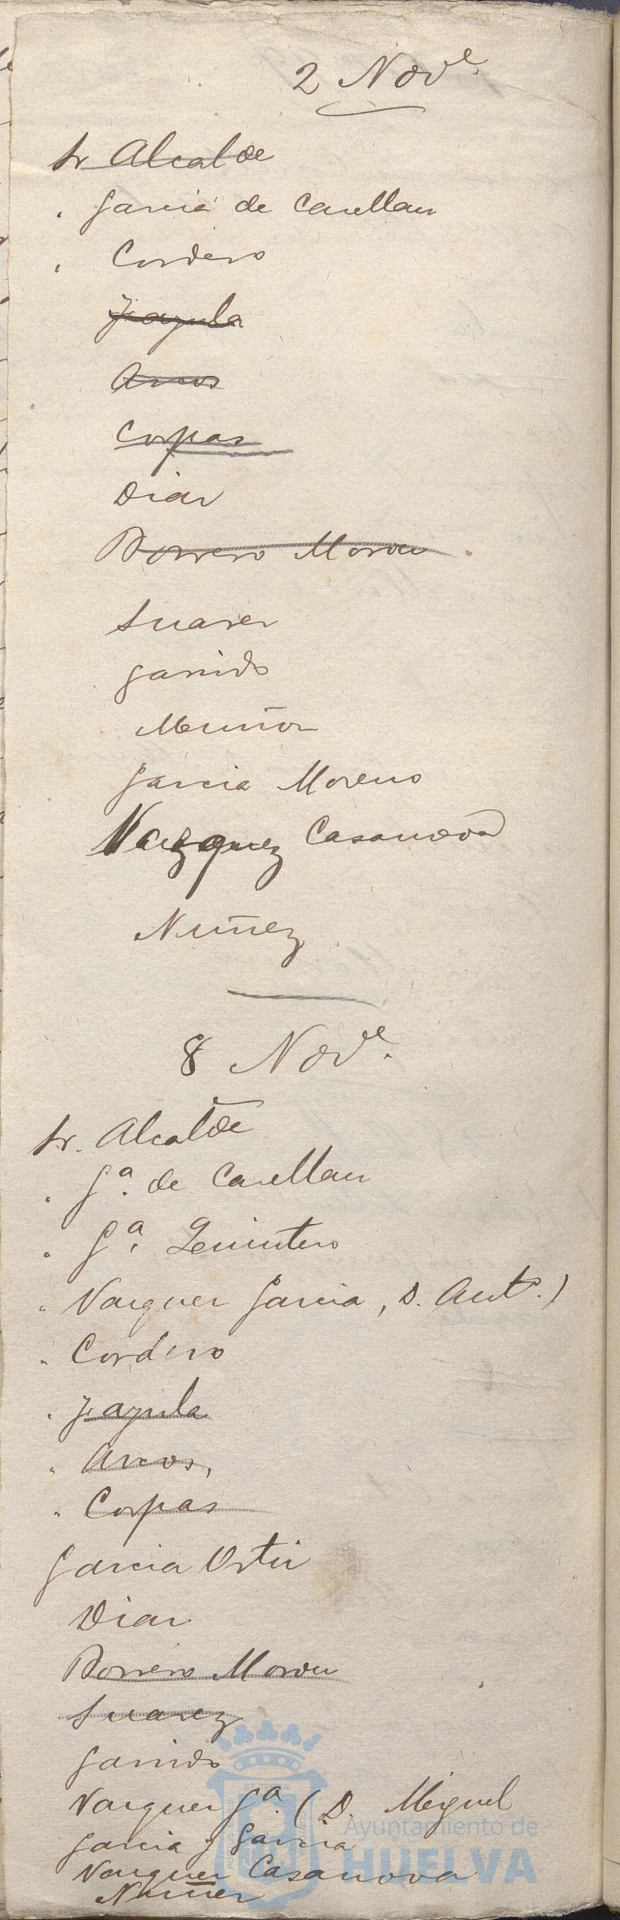 2 Nov.e
Sr Alcalde
García de Castellan
Cordero
Zayula
Arcos
Corpas
Diaz
Borrero Moron
Suarez
Garrido
Muñoz
Garcia Moreno
Vazquez Casanova
Nuñez
8 Nov.e
Sr. Alcalde
G.a de Castellan
G.a Quintero
Vazquez Garcia, D. Ant.o)
Cordero
Zayula
Arcos,
Corpas
Garcia Ortiz
Diaz
Borrero Moron
Suarez
Garrido
Vazquez G.a (D. Miguel
Garcia y Garcia
Vazquez Casanova
Nuñez
Ayuntamiento de
HUELVA